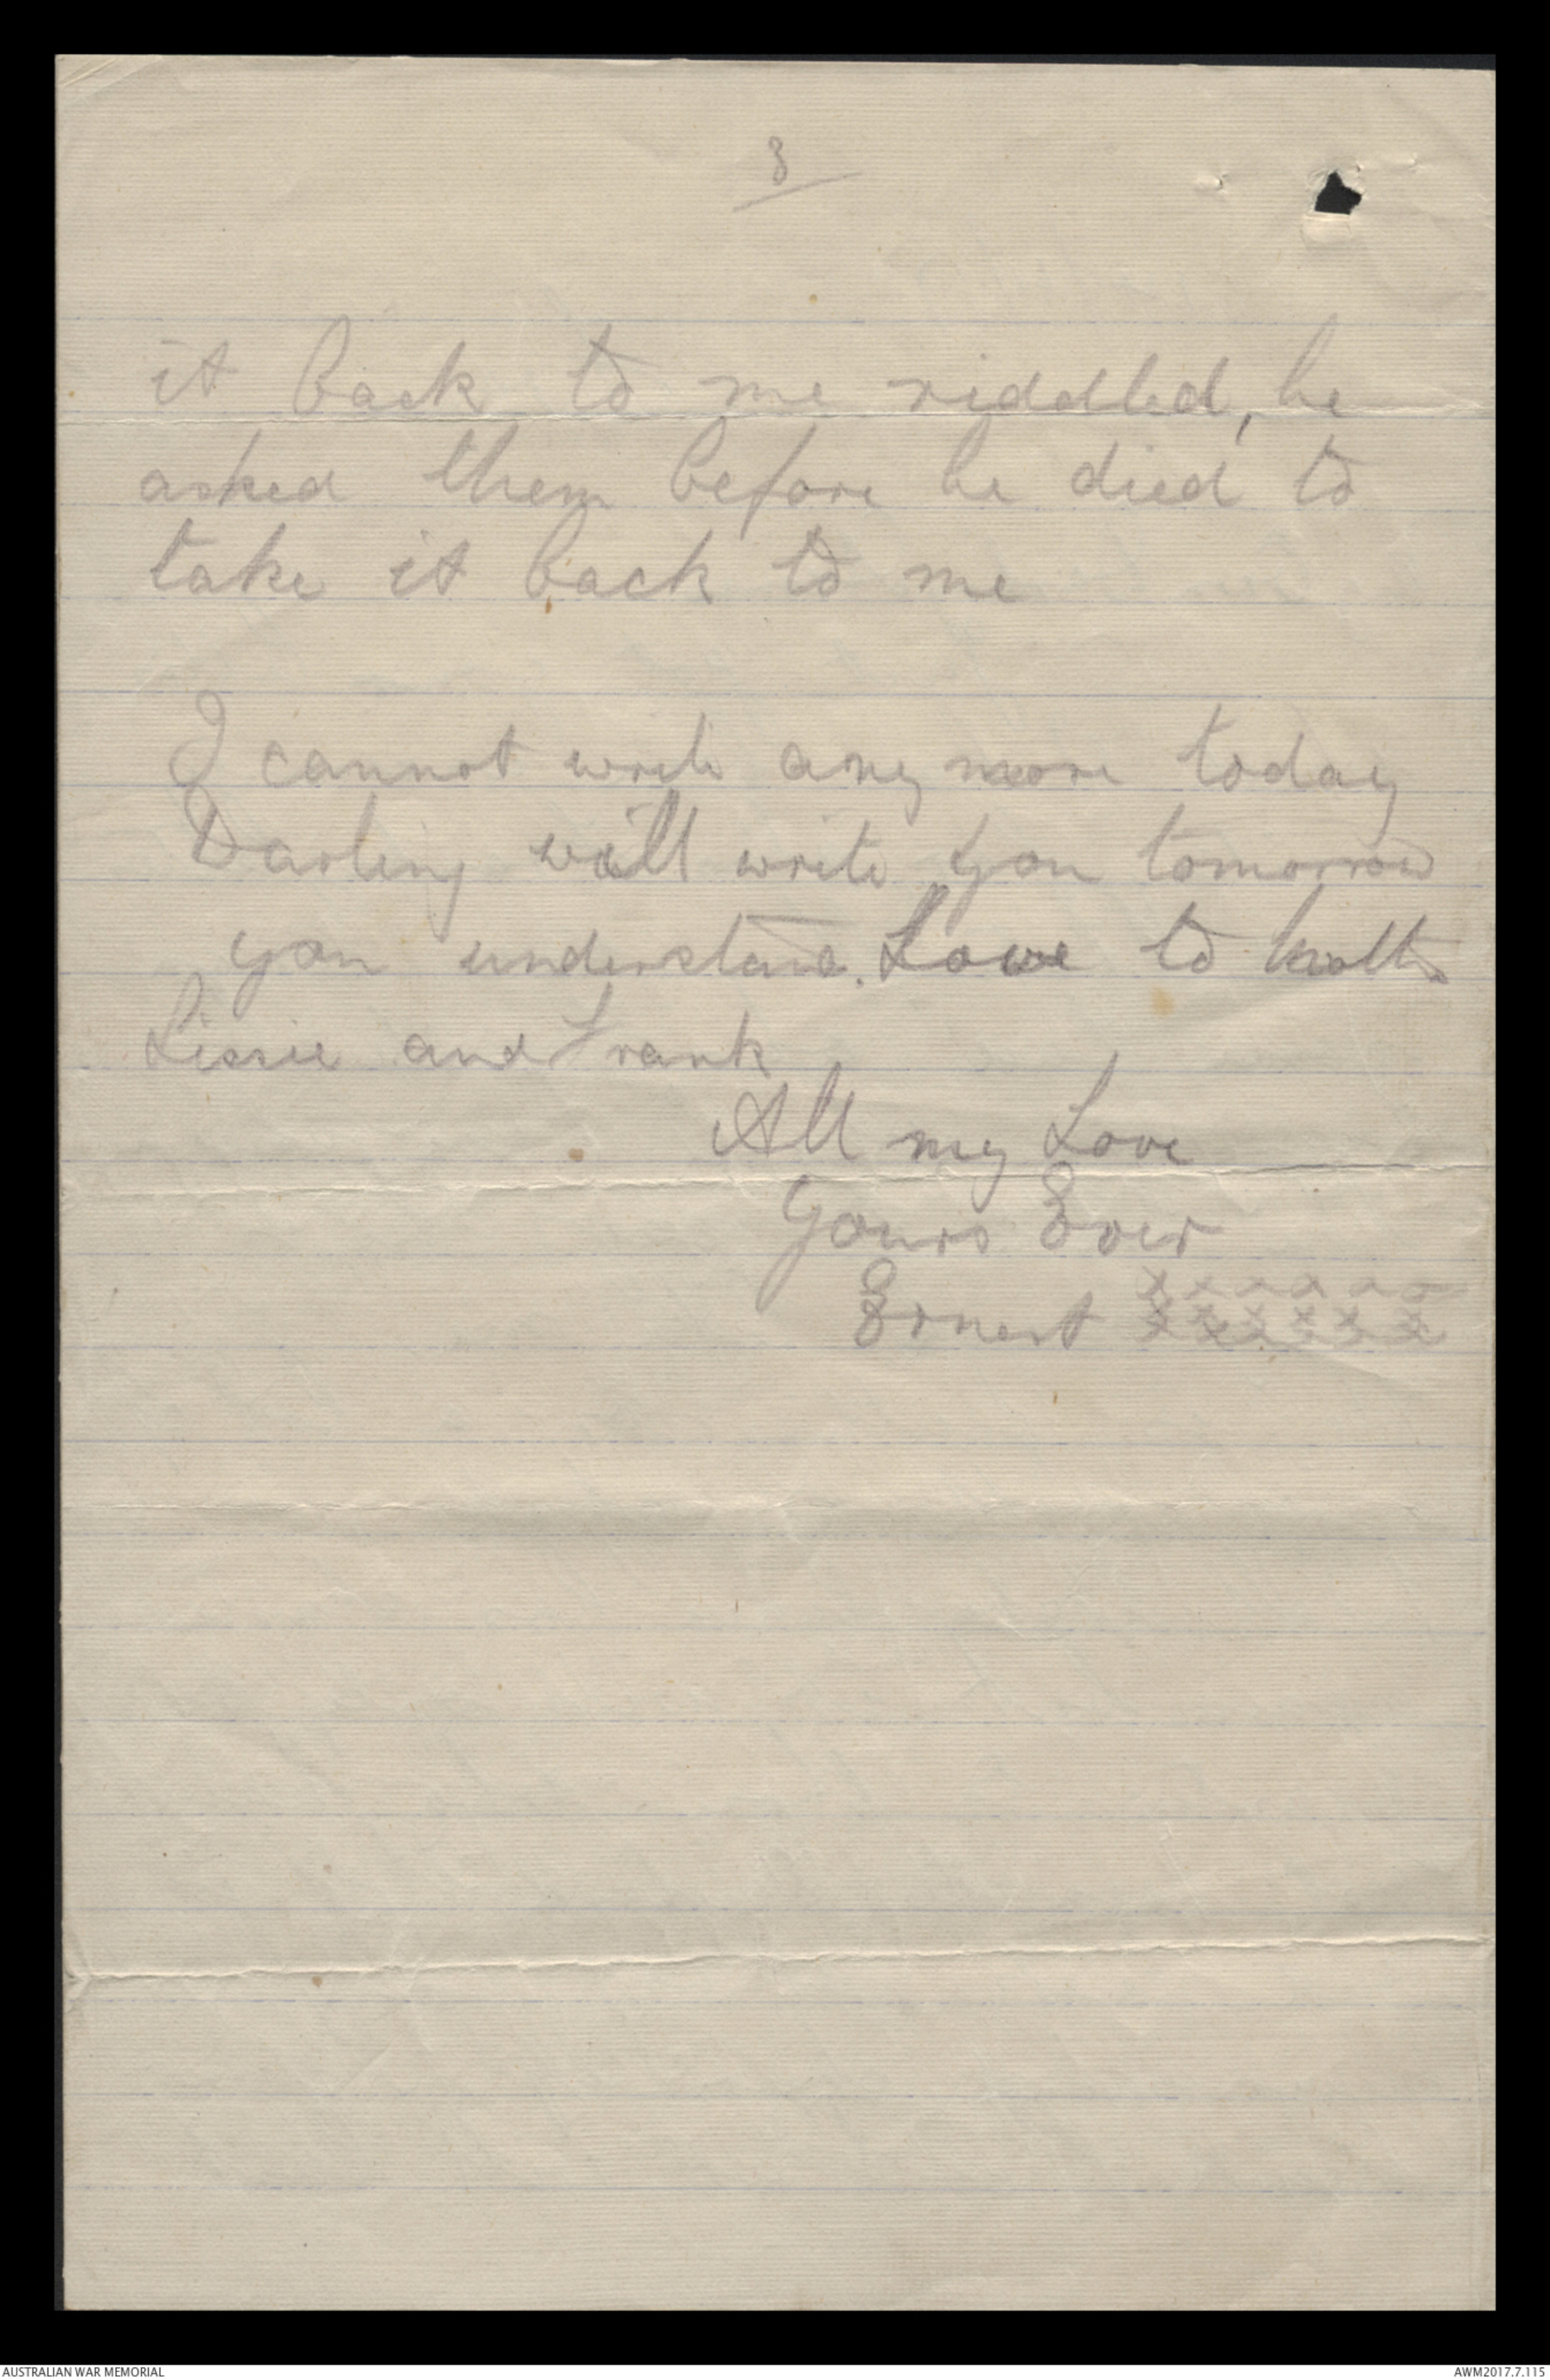 3
it back to me riddled, he
asked them before he died to
take it back to me
I cannot write any more today
Darling will write you tomorrow
you understand. Love to
Lissie and Frank
All my Love
Yours Ever
x x x x x x
Ernest x x x x x x
AUSTRALIAN WAR MEMORIAL
AWM2017.7.115